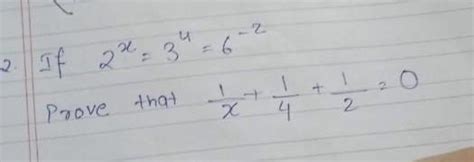 2. If 2^x = 3^4 = 6^-2
Prove that 1/x + 1/4 + 1/2 = 0